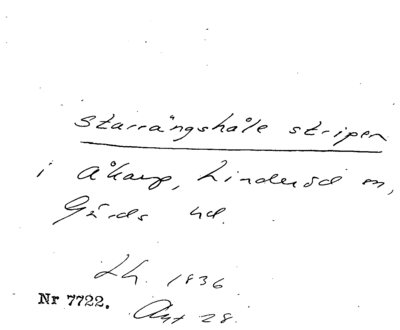 Starrängshåle stripen
i Åkarp, Linderöd sn,
Gärds hd.
Lh. 1836
Nr 7722. Akt 28.